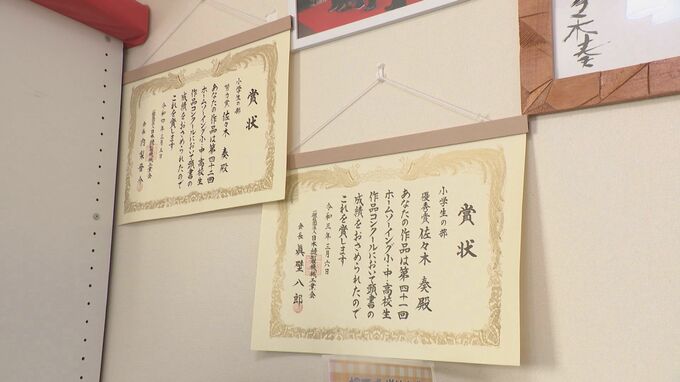 賞状
小学生の部
努力賞 佐々木 奏 殿
あなたの作品は第四十二回
ホームソーイング小・中・高校生
作品コンクールにおいて頭書の
成績をおさめられたので
これを賞します
令和四年三月五日
会長
賞状
小学生の部
優秀賞 佐々木 奏 殿
あなたの作品は第四十一回
ホームソーイング小・中・高校生
作品コンクールにおいて頭書の
成績をおさめられたので
これを賞します
令和三年三月六日
一般社団法人日本縫製機械工業会
会長 眞壁 八郎
々木奏